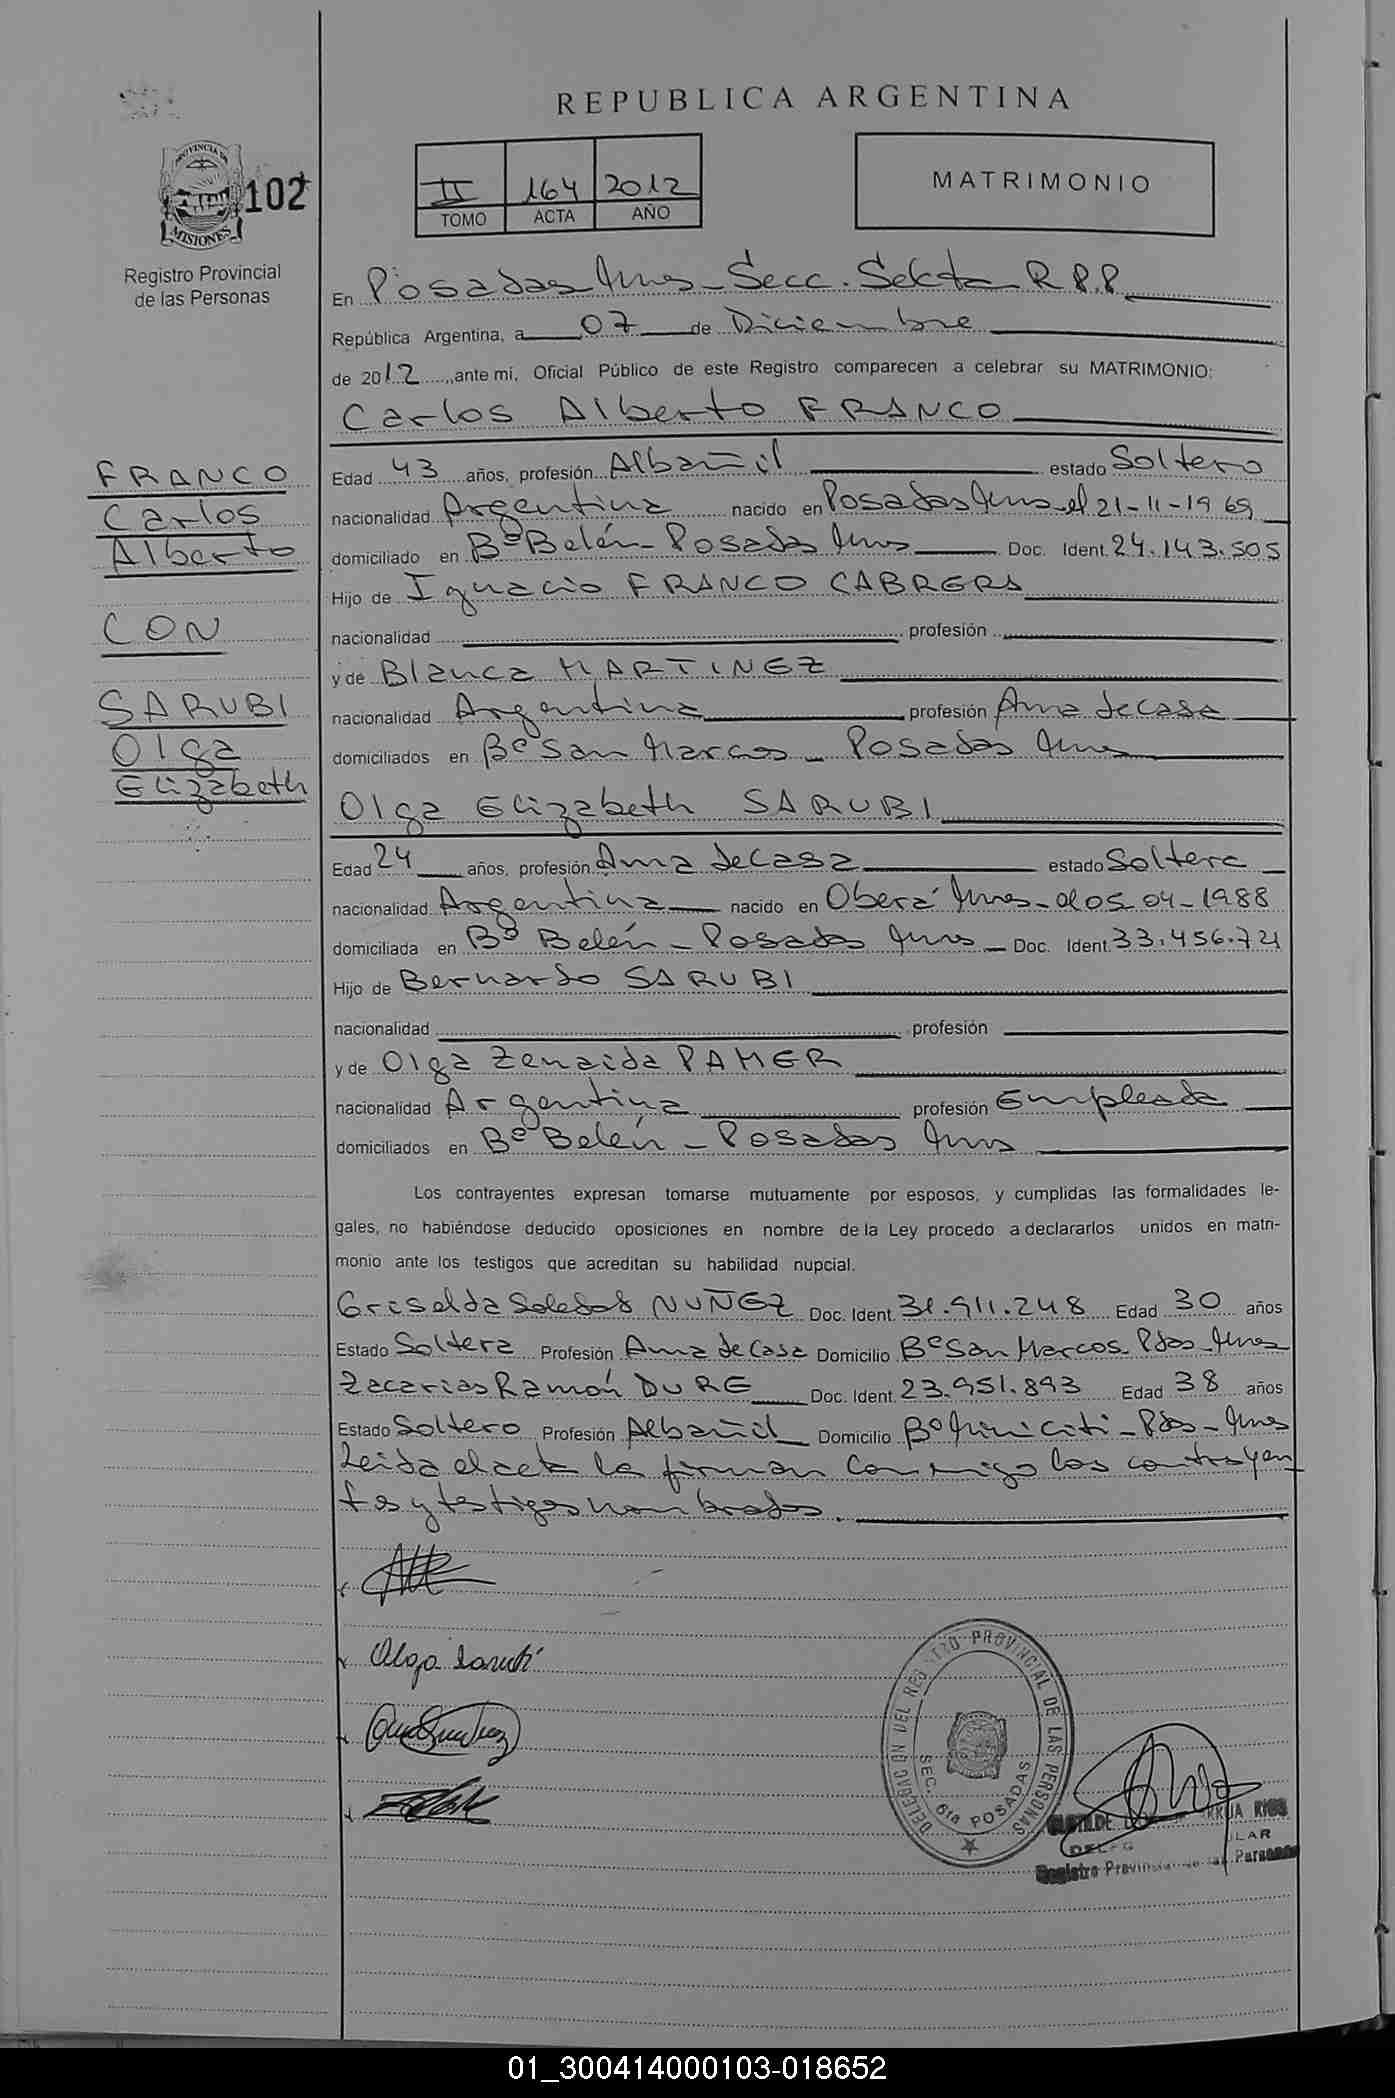 REPUBLICA ARGENTINA
PROVINCIA DE
MISIONES
102
Registro Provincial
de las Personas
II 164 2012
TOMO ACTA AÑO
MATRIMONIO
En Posadas Mnes - Secc. Sexta R.P.P.
República Argentina, a 07 de Diciembre
de 2012, ante mi, Oficial Público de este Registro comparecen a celebrar su MATRIMONIO:
Carlos Alberto FRANCO
FRANCO
Carlos
Alberto
CON
SARUBI
Olga
Elizabeth
Edad 43 años, profesión Albañil estado Soltero
nacionalidad Argentina nacido en Posadas Mnes el 21-11-1969
domiciliado en Bº Belén - Posadas Mnes Doc. Ident. 24.143.505
Hijo de Ignacio FRANCO CABRERA
nacionalidad profesión
y de Blanca MARTINEZ
nacionalidad Argentina profesión Ama de casa
domiciliados en Bº San Marcos - Posadas Mnes
Olga Elizabeth SARUBI
Edad 24 años, profesión Ama de casa estado Soltera
nacionalidad Argentina nacido en Oberá Mnes - el 05-04-1988
domiciliada en Bº Belén - Posadas Mnes - Doc. Ident. 33.456.721
Hijo de Bernardo SARUBI
nacionalidad profesión
y de Olga Zenaida PAMER
nacionalidad Argentina profesión Empleada
domiciliados en Bº Belén - Posadas Mnes
Los contrayentes expresan tomarse mutuamente por esposos, y cumplidas las formalidades le-
gales, no habiéndose deducido oposiciones en nombre de la Ley procedo a declararlos unidos en matri-
monio ante los testigos que acreditan su habilidad nupcial.
Griselda Soledad NUÑEZ Doc. Ident. 31.911.248 Edad 30 años
Estado Soltera Profesión Ama de Casa Domicilio Bº San Marcos - Pdas - Mnes
Zacarias Ramón DURE Doc. Ident. 23.951.893 Edad 38 años
Estado Soltero Profesión Albañil Domicilio Bº Miniciti - Pdas - Mnes
Leida el acta la firman conmigo los contrayen
tes y testigos nombrados.
Olga Sarubi
DELEGACION DEL REGISTRO PROVINCIAL DE LAS PERSONAS
SEC. 6ta POSADAS
Registro Provincial de las Personas
01_300414000103-018652